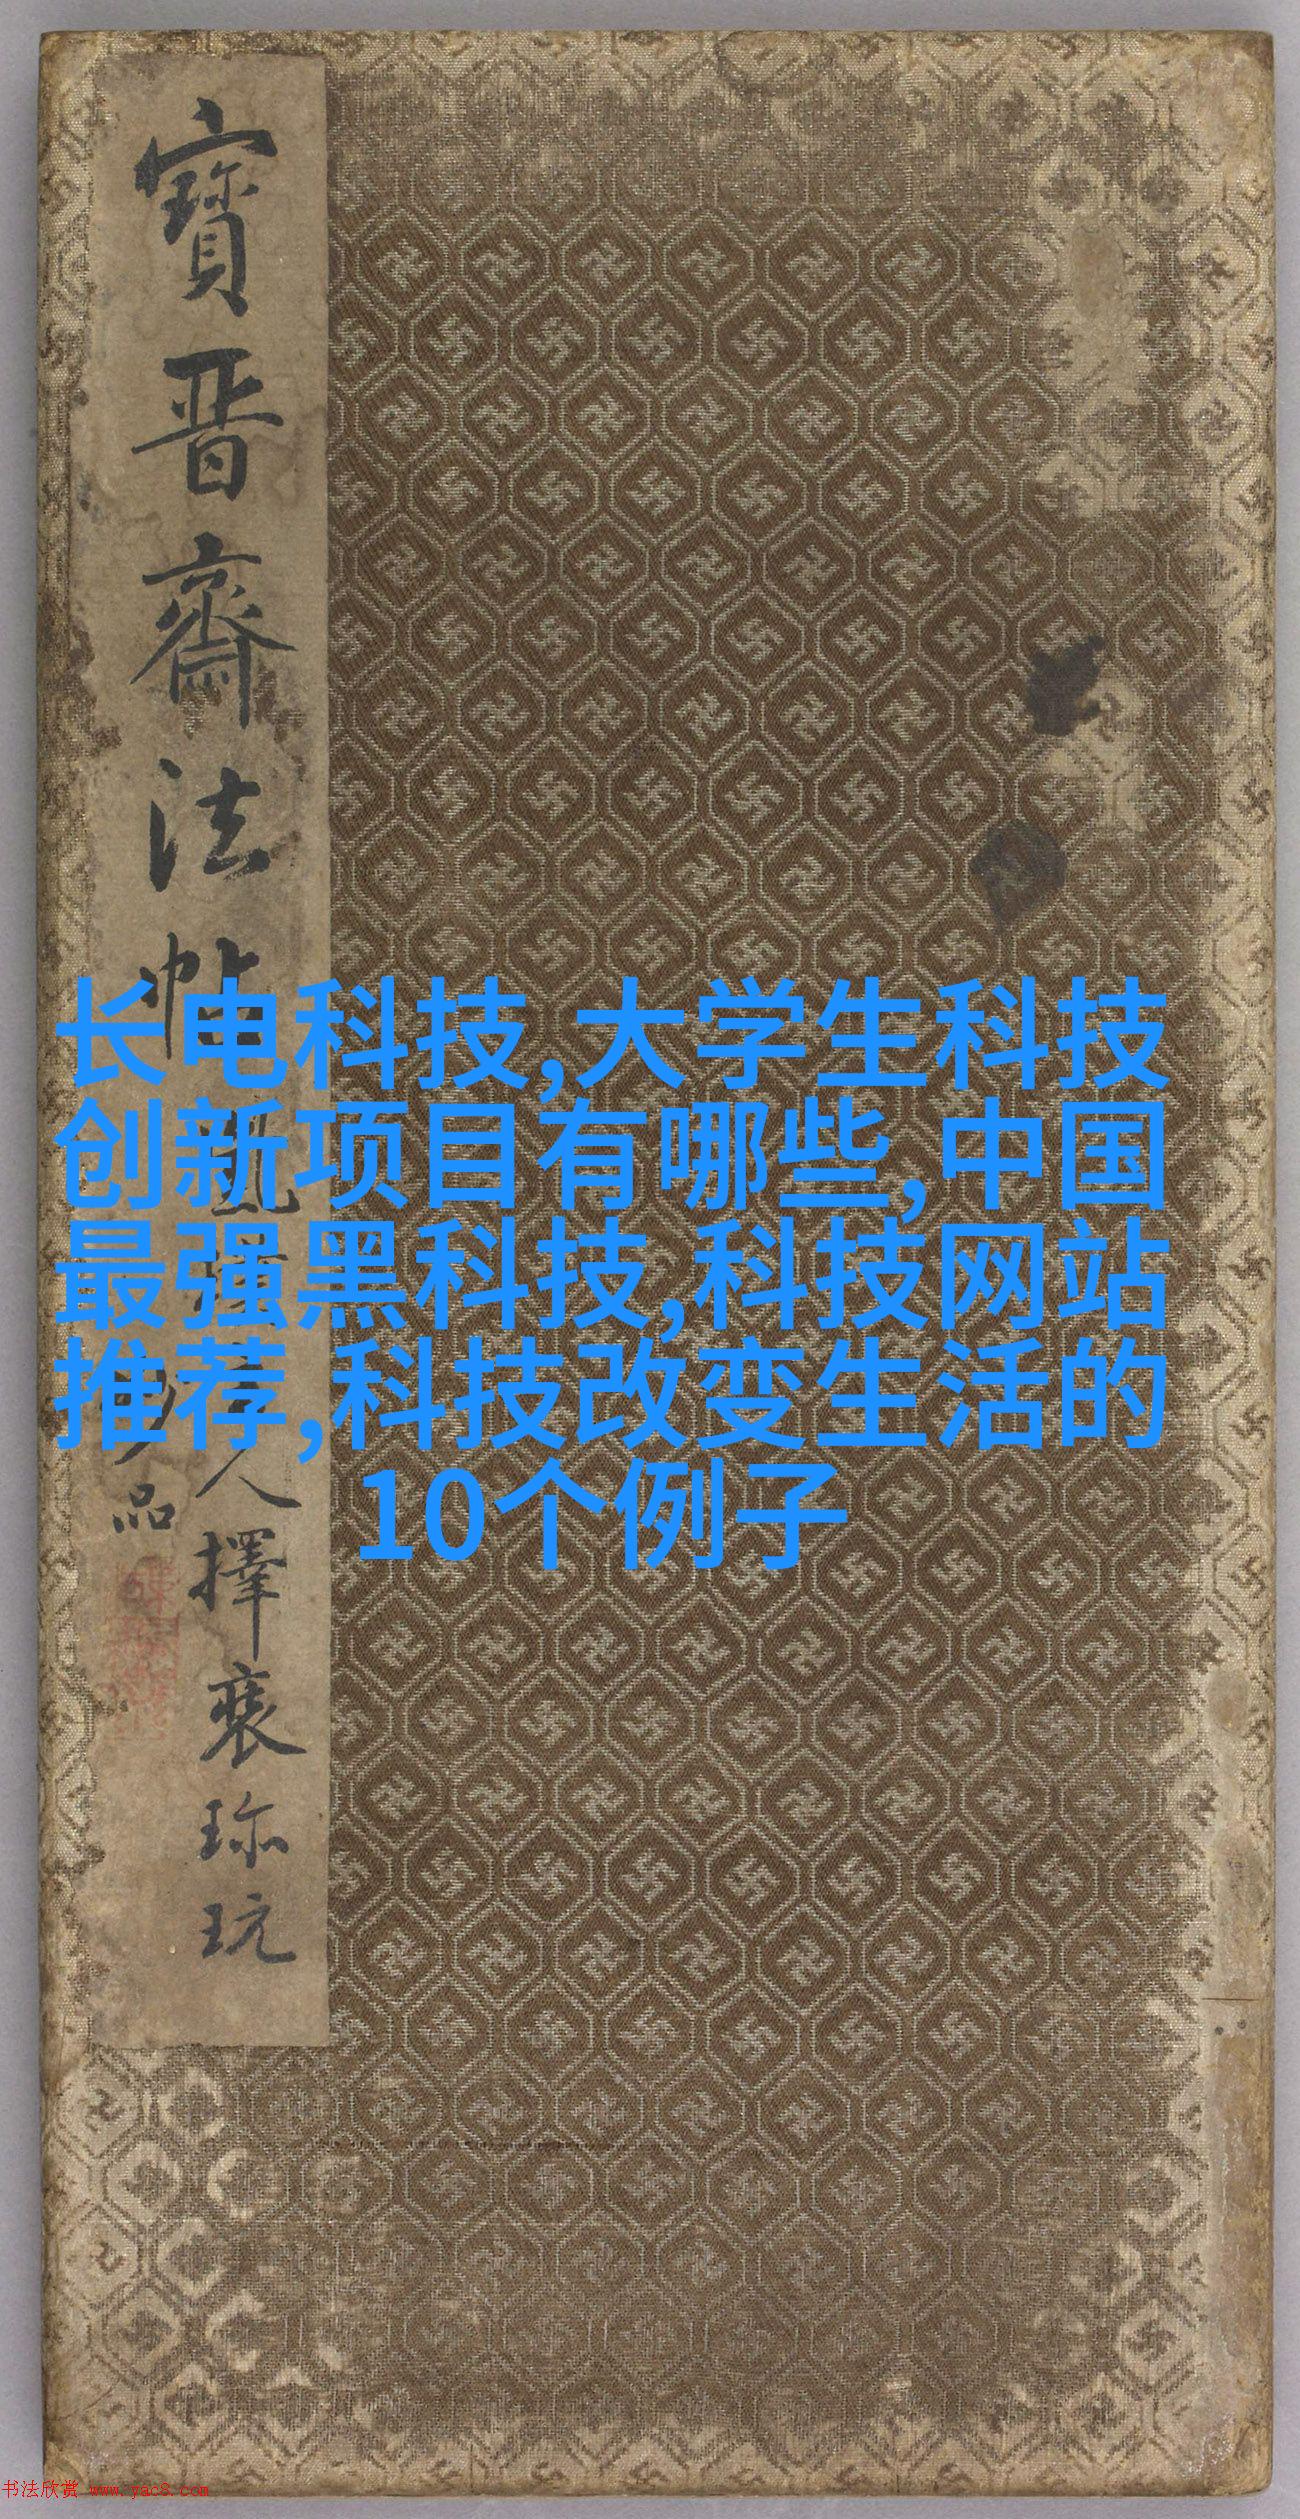 寶晋齋法帖
人擇裘珎玩
品
长电科技,大学生科技
创新项目有哪些,中国
最强黑科技,科技网站
推荐,科技改变生活的
10个例子
书法欣赏 www.yac8.com